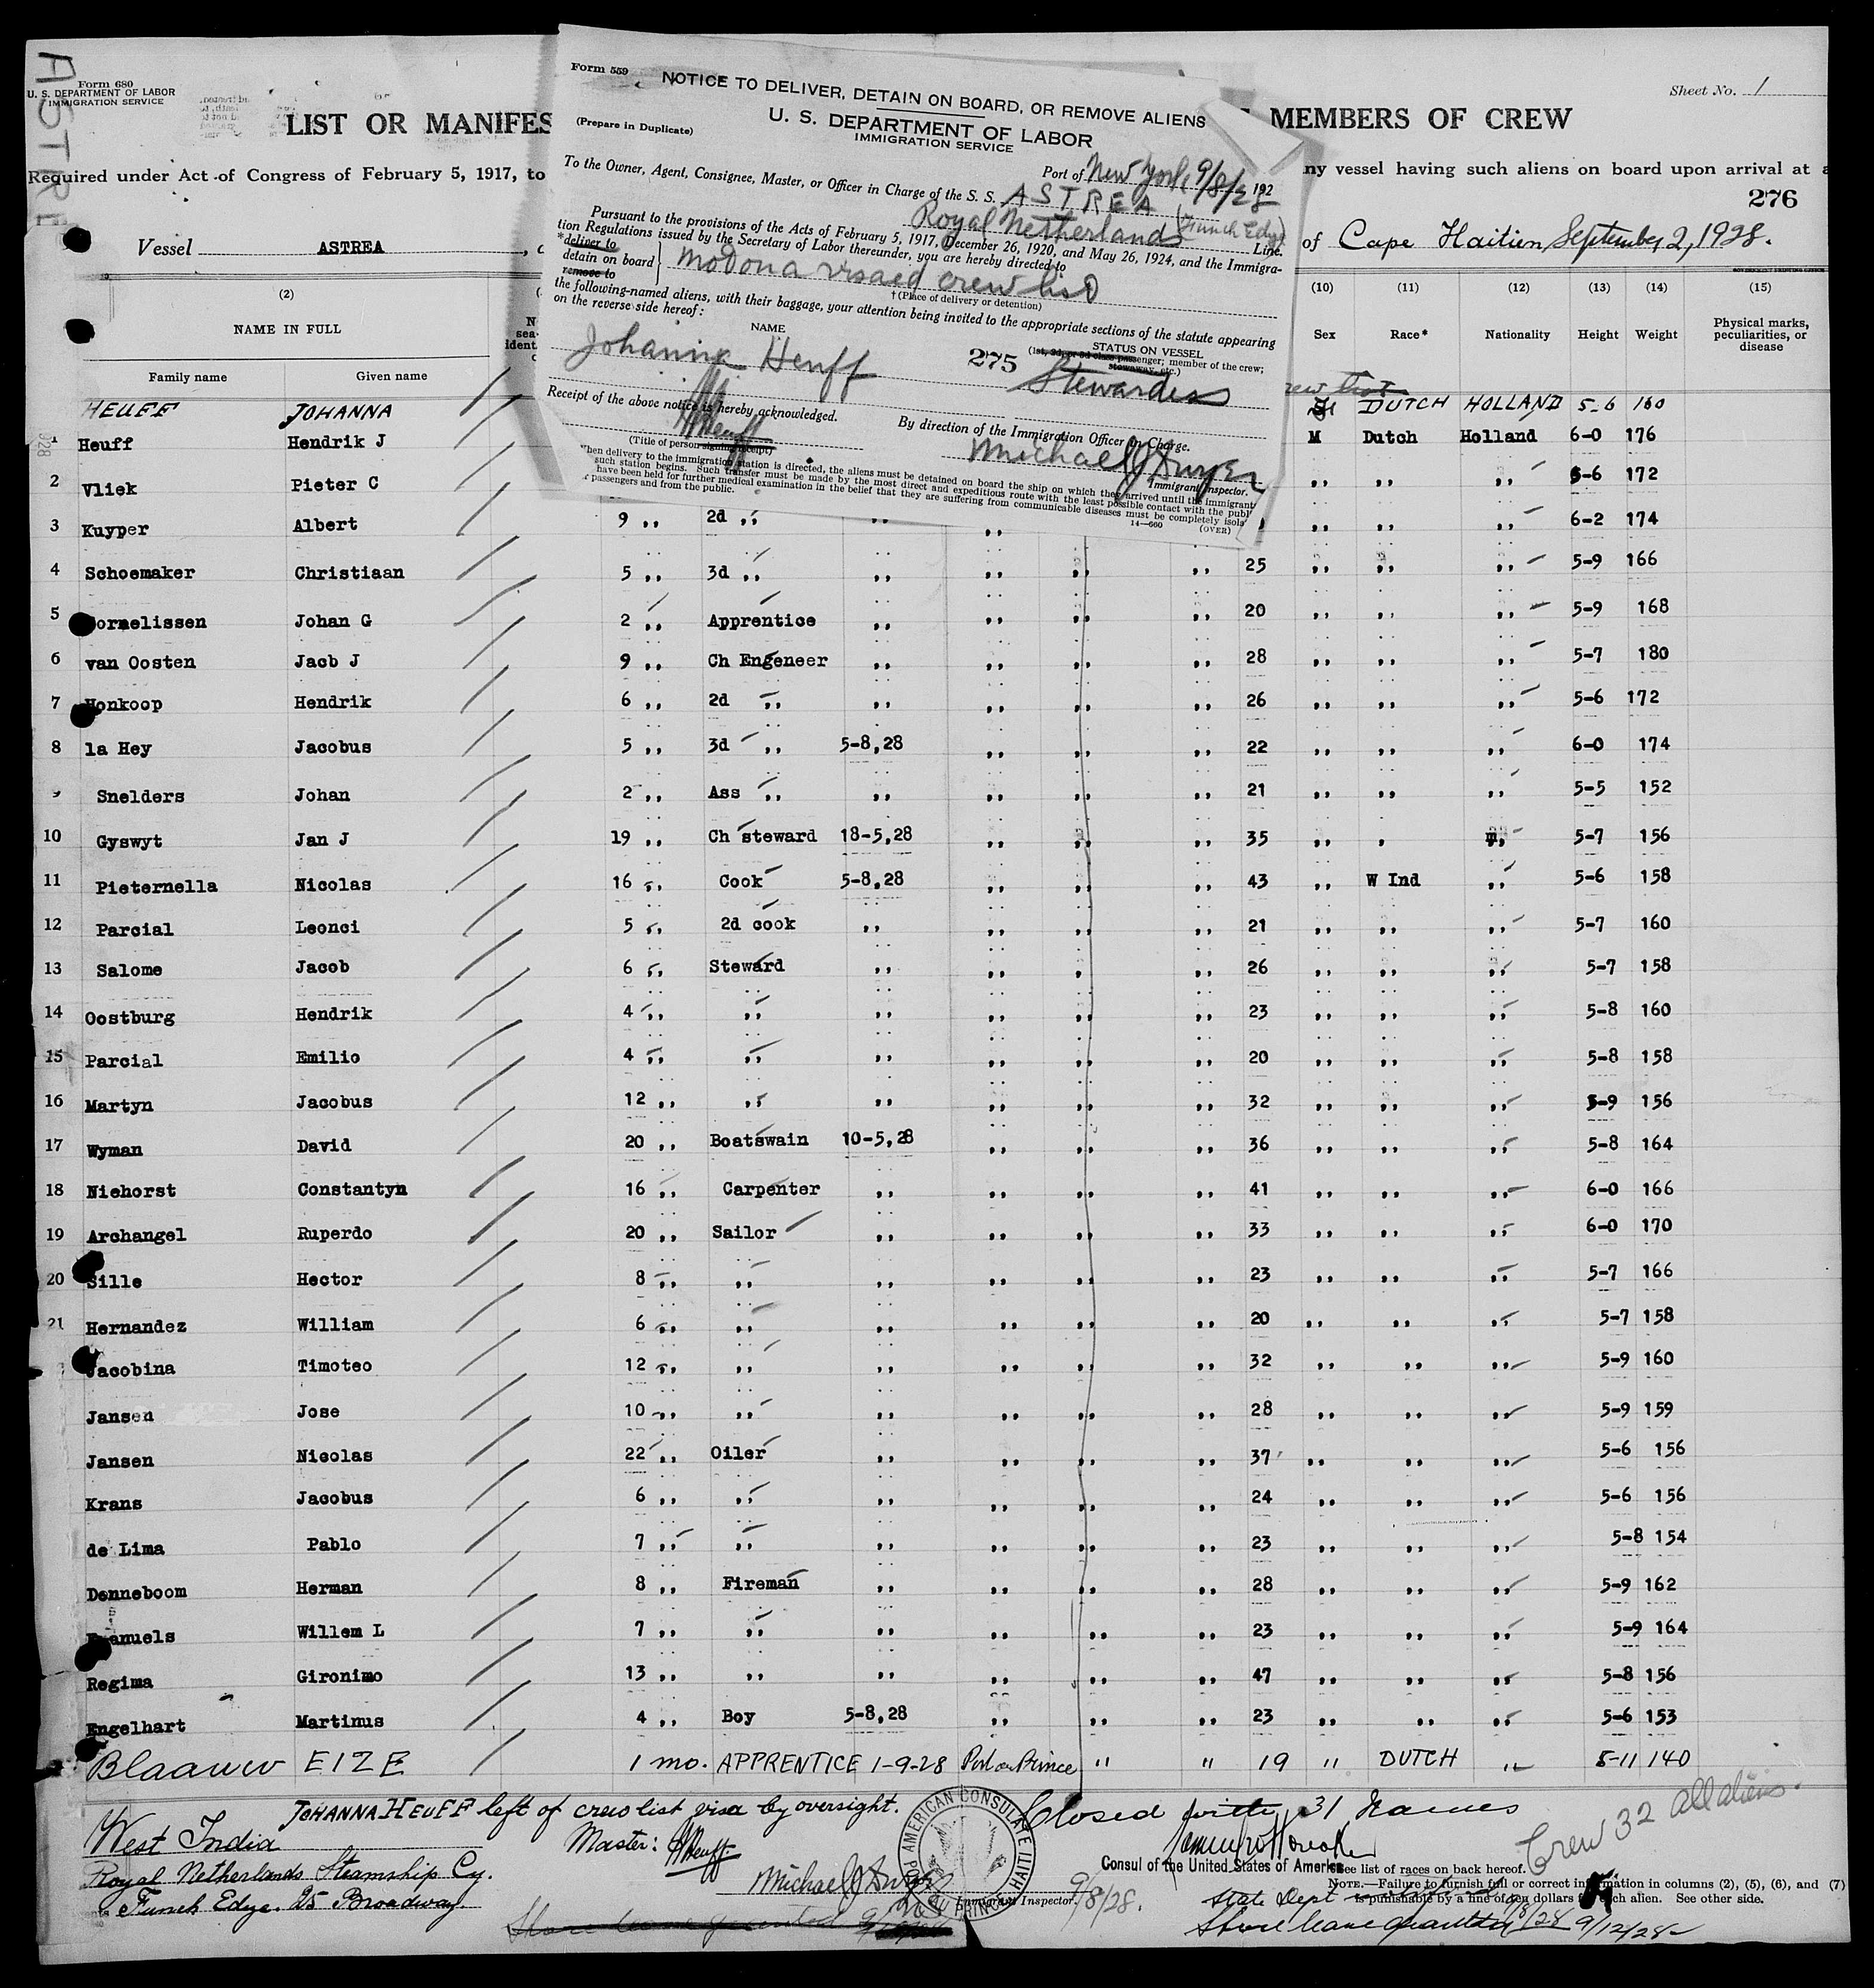 ASTREA
Form 680
U. S. DEPARTMENT OF LABOR
IMMIGRATION SERVICE
LIST OR MANIFES
MEMBERS OF CREW
Sheet No. 1
Required under Act of Congress of February 5, 1917, to
ny vessel having such aliens on board upon arrival at a
276
Vessel ASTREA
of Cape Haitien September 2, 1928.
Form 559
NOTICE TO DELIVER, DETAIN ON BOARD, OR REMOVE ALIENS
(Prepare in Duplicate)
U. S. DEPARTMENT OF LABOR
IMMIGRATION SERVICE
Port of New York 9/8/28 192
To the Owner, Agent, Consignee, Master, or Officer in Charge of the S. S. ASTREA
Royal Netherlands (Funch Edye) Line.
Pursuant to the provisions of the Acts of February 5, 1917, December 26, 1920, and May 26, 1924, and the Immigra-
tion Regulations issued by the Secretary of Labor thereunder, you are hereby directed to
*deliver to
detain on board
remove to
not on a visaed crew list
†(Place of delivery or detention)
the following-named aliens, with their baggage, your attention being invited to the appropriate sections of the statute appearing
on the reverse side hereof:
NAME
STATUS ON VESSEL
(1st, 2d, or 3d class passenger; member of the crew;
stowaway, etc.)
Johanna Heuff 275 Stewardess
Receipt of the above notice is hereby acknowledged.
By direction of the Immigration Officer in Charge.
HHeuff
(Title of person signing receipt)
Michael J Dwyer
Immigrant Inspector.
hen delivery to the immigration station is directed, the aliens must be detained on board the ship on which they arrived until the immigrant
such station begins. Such transfer must be made by the most direct and expeditious route with the least possible contact with the publ
have been held for further medical examination in the belief that they are suffering from communicable diseases must be completely isola
passengers and from the public.
14—660
(OVER)
(2) (10) (11) (12) (13) (14) (15)
NAME IN FULL Sex Race* Nationality Height Weight Physical marks, peculiarities, or disease
Family name Given name
HEUFF JOHANNA DUTCH HOLLAND 5-6 160
1 Heuff Hendrik J M Dutch Holland 6-0 176
2 Vliek Pieter C ,, ,, ,, 5-6 172
3 Kuyper Albert 9 ,, 2d ,, ,, ,, ,, ,, ,, 6-2 174
4 Schoemaker Christiaan 5 ,, 3d ,, ,, ,, ,, ,, 25 ,, ,, ,, 5-9 166
5 Cornelissen Johan G 2 ,, Apprentice ,, ,, ,, ,, 20 ,, ,, ,, 5-9 168
6 van Oosten Jacb J 9 ,, Ch Engeneer ,, ,, ,, ,, 28 ,, ,, ,, 5-7 180
7 Honkoop Hendrik 6 ,, 2d ,, ,, ,, ,, ,, 26 ,, ,, ,, 5-6 172
8 la Hey Jacobus 5 ,, 3d ,, 5-8,28 ,, ,, ,, 22 ,, ,, ,, 6-0 174
9 Snelders Johan 2 ,, Ass ,, ,, ,, ,, ,, 21 ,, ,, ,, 5-5 152
10 Gyswyt Jan J 19 ,, Ch steward 18-5,28 ,, ,, ,, 35 ,, , ,, 5-7 156
11 Pieternella Nicolas 16 ,, Cook 5-8,28 ,, ,, ,, 43 ,, W Ind ,, 5-6 158
12 Parcial Leonci 5 ,, 2d cook ,, ,, ,, ,, 21 ,, ,, ,, 5-7 160
13 Salome Jacob 6 ,, Steward ,, ,, , ,, 26 ,, ,, ,, 5-7 158
14 Oostburg Hendrik 4 ,, ,, ,, ,, ,, ,, 23 ,, ,, ,, 5-8 160
15 Parcial Emilio 4 ,, ,, ,, ,, ,, ,, 20 ,, ,, ,, 5-8 158
16 Martyn Jacobus 12 ,, ,, ,, ,, ,, ,, 32 ,, ,, ,, 5-9 156
17 Wyman David 20 ,, Boatswain 10-5,28 ,, ,, ,, 36 ,, ,, ,, 5-8 164
18 Niehorst Constantyn 16 ,, Carpenter ,, ,, ,, ,, 41 ,, ,, ,, 6-0 166
19 Archangel Ruperdo 20 ,, Sailor ,, ,, ,, ,, 33 ,, ,, ,, 6-0 170
20 Sille Hector 8 ,, ,, ,, ,, ,, ,, 23 ,, ,, ,, 5-7 166
21 Hernandez William 6 ,, ,, ,, ,, ,, ,, 20 ,, ,, ,, 5-7 158
Jacobina Timoteo 12 ,, ,, ,, ,, ,, ,, 32 ,, ,, ,, 5-9 160
Jansen Jose 10 ,, ,, ,, ,, ,, ,, 28 ,, ,, ,, 5-9 159
Jansen Nicolas 22 ,, Oiler ,, ,, ,, ,, 37 ,, ,, ,, 5-6 156
Krans Jacobus 6 ,, ,, ,, ,, ,, ,, 24 ,, ,, ,, 5-6 156
de Lima Pablo 7 ,, ,, ,, ,, ,, ,, 23 ,, ,, ,, 5-8 154
Denneboom Herman 8 ,, Fireman ,, ,, ,, ,, 28 ,, ,, ,, 5-9 162
Emanuels Willem L 7 ,, ,, ,, ,, ,, ,, 23 ,, ,, ,, 5-9 164
Regima Gironimo 13 ,, ,, ,, ,, ,, ,, 47 ,, ,, ,, 5-8 156
Engelhart Martinus 4 ,, Boy 5-8,28 ,, ,, ,, 23 ,, ,, ,, 5-6 153
Blaauw EIZE 1 mo. APPRENTICE 1-9-28 Port au Prince " " 19 " DUTCH " 5-11 140
JOHANNA HEUFF left of crew list visa by oversight.
Closed with 31 Names
Crew 32 all aliens.
West India
Royal Netherlands Steamship Cy.
Funch Edye. 25 Broadway.
Master: HHeuff.
Michael J Dwyer
Immigrant Inspector.
9/8/28.
AMERICAN CONSULATE
HAITI
Consul of the United States of America
See list of races on back hereof.
NOTE.—Failure to furnish full or correct information in columns (2), (5), (6), and (7)
is punishable by a fine of ten dollars for each alien. See other side.
State Dept
Shore leave granted 9/12/28